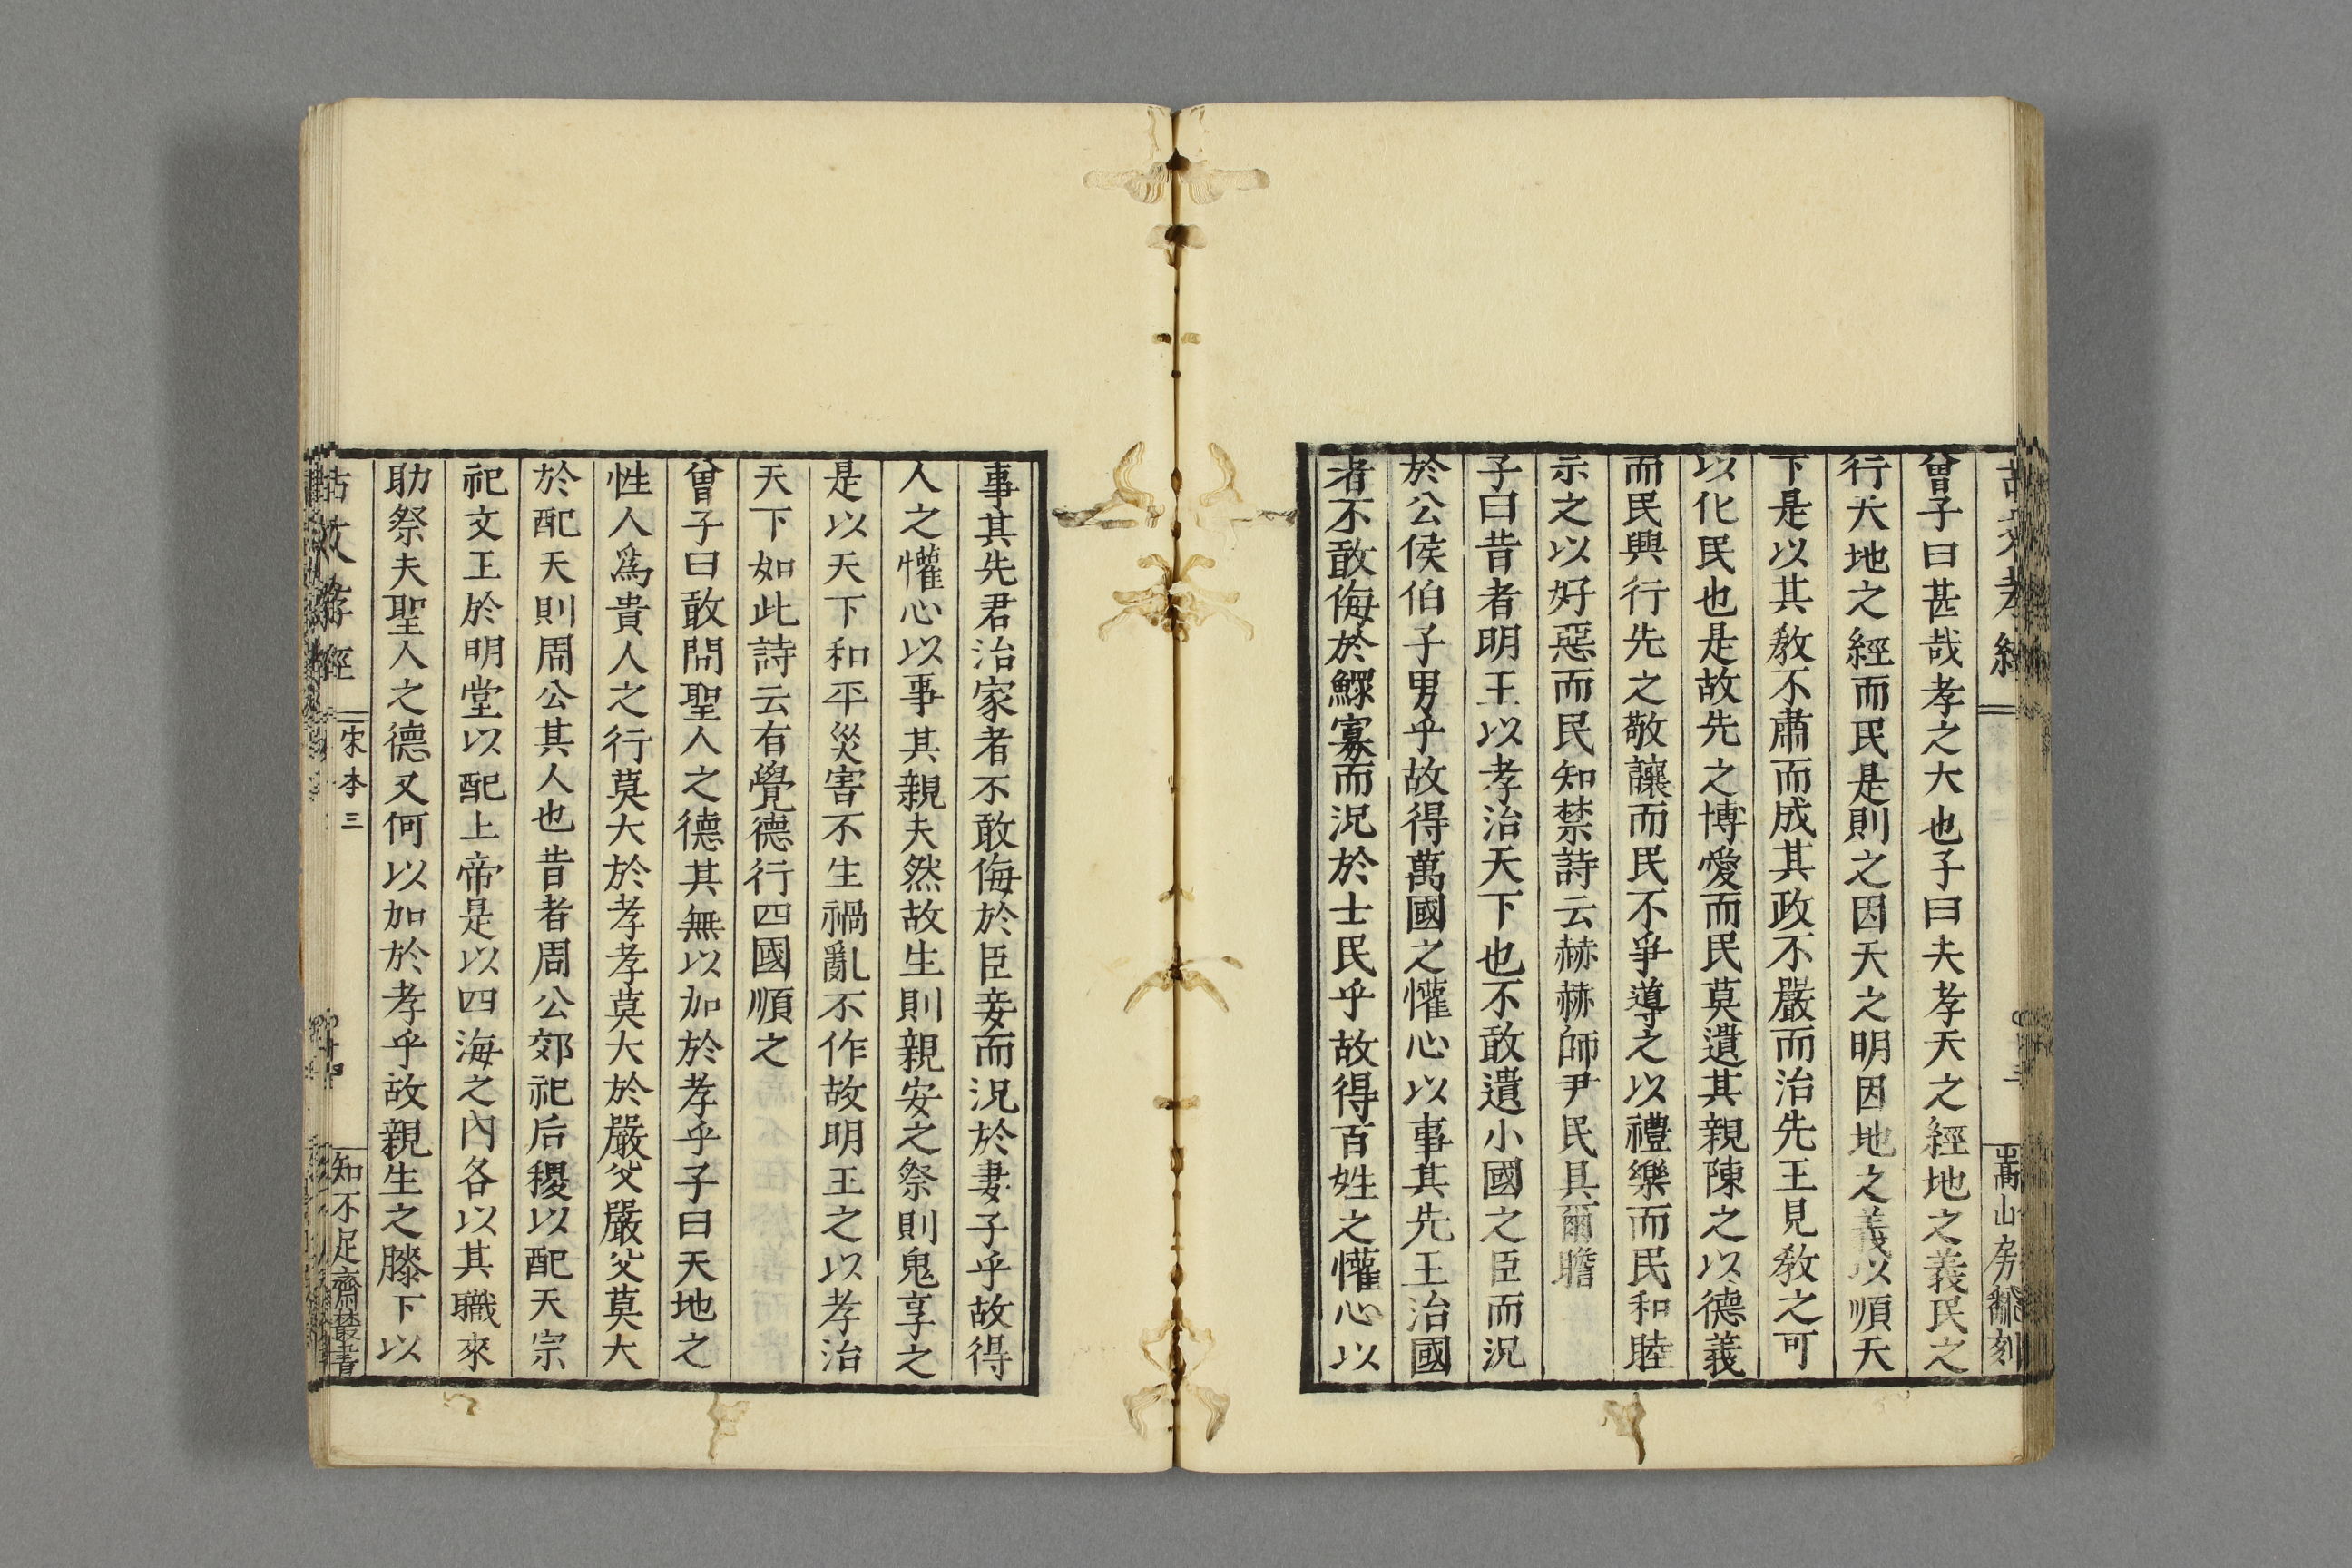 古文孝經
嵩山房翻刻
曾子曰甚哉孝之大也子曰夫孝天之經地之義民之
行天地之經而民是則之因天之明因地之義以順天
下是以其敎不肅而成其政不嚴而治先王見敎之可
以化民也是故先之博愛而民莫遺其親陳之以德義
而民興行先之敬讓而民不爭導之以禮樂而民和睦
示之以好惡而民知禁詩云赫赫師尹民具爾瞻
子曰昔者明王以孝治天下也不敢遺小國之臣而況
於公侯伯子男乎故得萬國之懽心以事其先王治國
者不敢侮於鰥寡而況於士民乎故得百姓之懽心以
事其先君治家者不敢侮於臣妾而況於妻子乎故得
人之懽心以事其親夫然故生則親安之祭則鬼享之
是以天下和平災害不生禍亂不作故明王之以孝治
天下如此詩云有覺德行四國順之
曾子曰敢問聖人之德其無以加於孝乎子曰天地之
性人爲貴人之行莫大於孝孝莫大於嚴父嚴父莫大
於配天則周公其人也昔者周公郊祀后稷以配天宗
祀文王於明堂以配上帝是以四海之內各以其職來
助祭夫聖人之德又何以加於孝乎故親生之膝下以
古文孝經
宋本三
知不足齋叢書